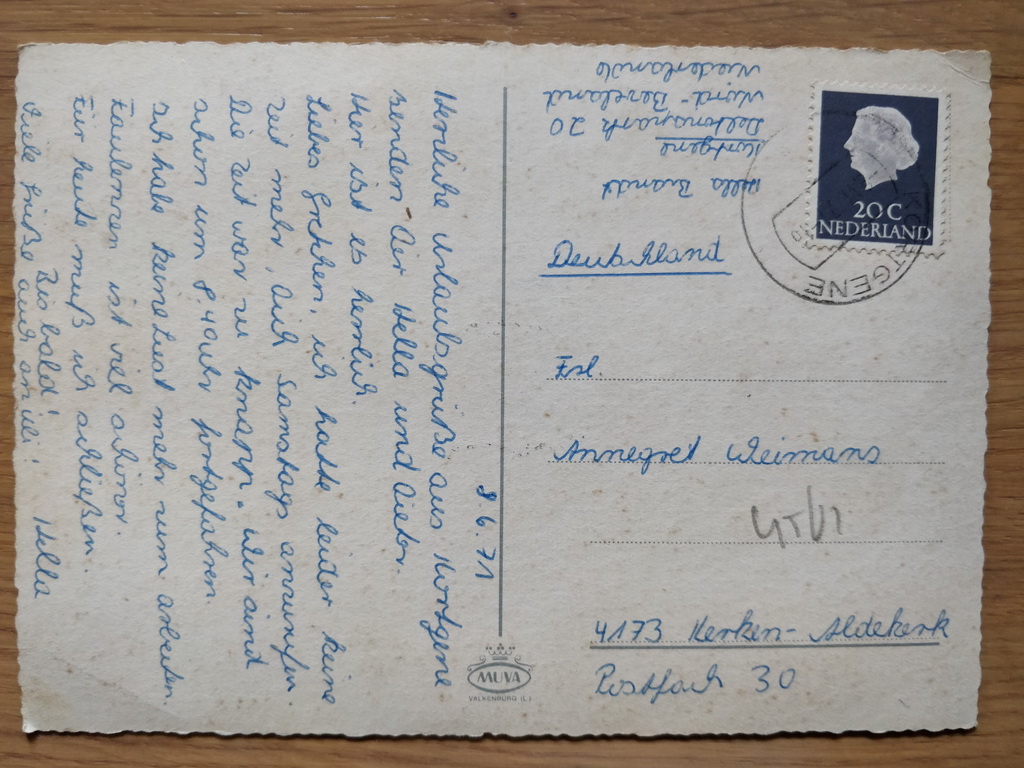 8.6.71
Herzliche Urlaubsgrüße aus Kortgene
senden Dir Hella und Dieter.
Hier ist es herrlich.
Liebes Gretchen, ich hatte leider keine
Zeit mehr, Dich Samstags anzurufen.
Die Zeit war zu knapp. Wir sind
schon um 4 Uhr fortgefahren.
Ich habe keine Lust mehr zum arbeiten.
Faulenzen ist viel schöner.
Für heute muß ich schließen.
Bis bald! Hella
Viele Grüße auch an
Hella Brandt
Kortgene
Deltonspark 20
Nord-Beveland
Niederlande
20 C
NEDERLAND
KORTGENE
Deutschland
Frl.
Annegret Weimans
4173 Kerken-Aldekerk
Postfach 30
MUVA
VALKENBURG (L.)